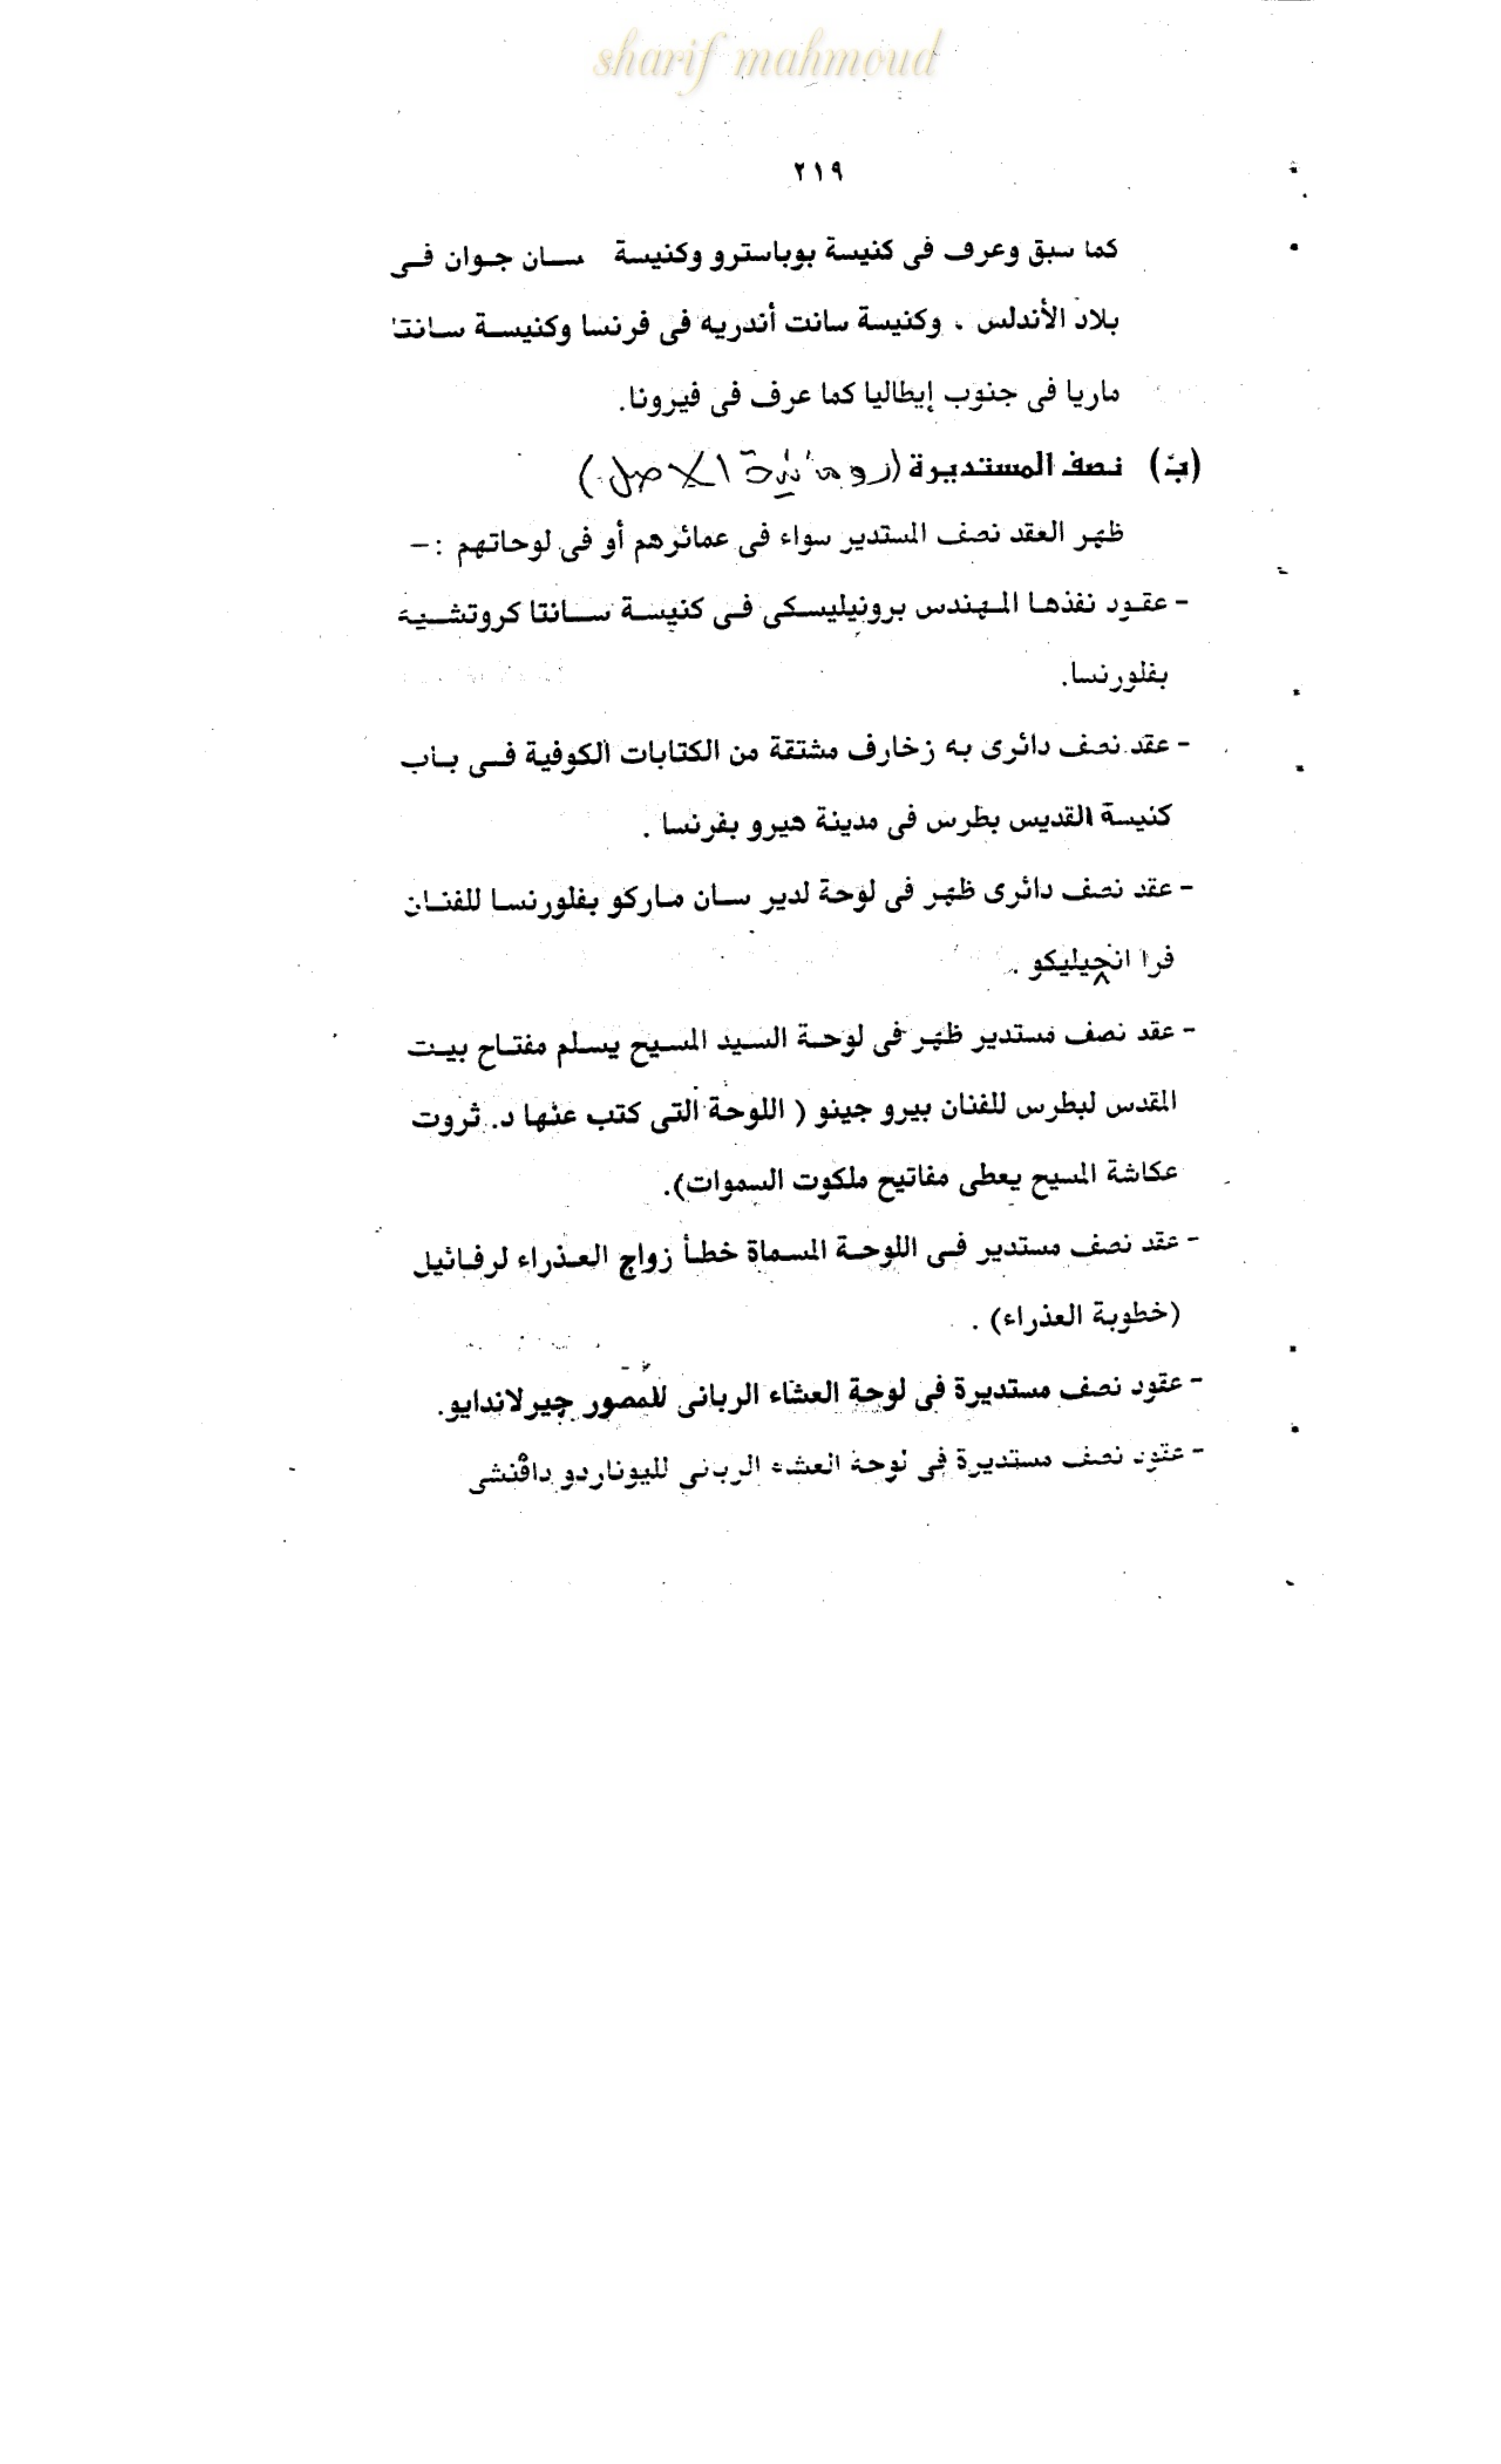 sharif mahmoud
٢١٩
كما سبق وعرف فى كنيسة بوباسترو وكنيسة سان جوان فى
بلاد الأندلس . وكنيسة سانت أندريه فى فرنسا وكنيسة سانتا
ماريا فى جنوب إيطاليا كما عرف فى فيرونا.
(ب) نصف المستديرة (رومانية الاصل)
ظهر العقد نصف المستدير سواء فى عمائرهم أو فى لوحاتهم :-
- عقود نفذها المهندس برونيليسكى فى كنيسة سانتا كروتشيه
بفلورنسا.
- عقد نصف دائرى به زخارف مشتقة من الكتابات الكوفية فى باب
كنيسة القديس بطرس فى مدينة هيرو بفرنسا .
- عقد نصف دائرى ظهر فى لوحة لدير سان ماركو بفلورنسا للفنان
فرا انجيليكو .
- عقد نصف مستدير ظهر فى لوحة السيد المسيح يسلم مفتاح بيت
المقدس لبطرس للفنان بيرو جينو ( اللوحة التى كتب عنها د. ثروت
عكاشة المسيح يعطى مفاتيح ملكوت السموات).
- عقد نصف مستدير فى اللوحة المسماة خطأ زواج العذراء لرفائيل
(خطوبة العذراء) .
- عقود نصف مستديرة فى لوحة العشاء الربانى للمصور چيرلاندايو.
- عقود نصف مستديرة فى لوحة العشاء الربانى لليوناردو داڤنشى